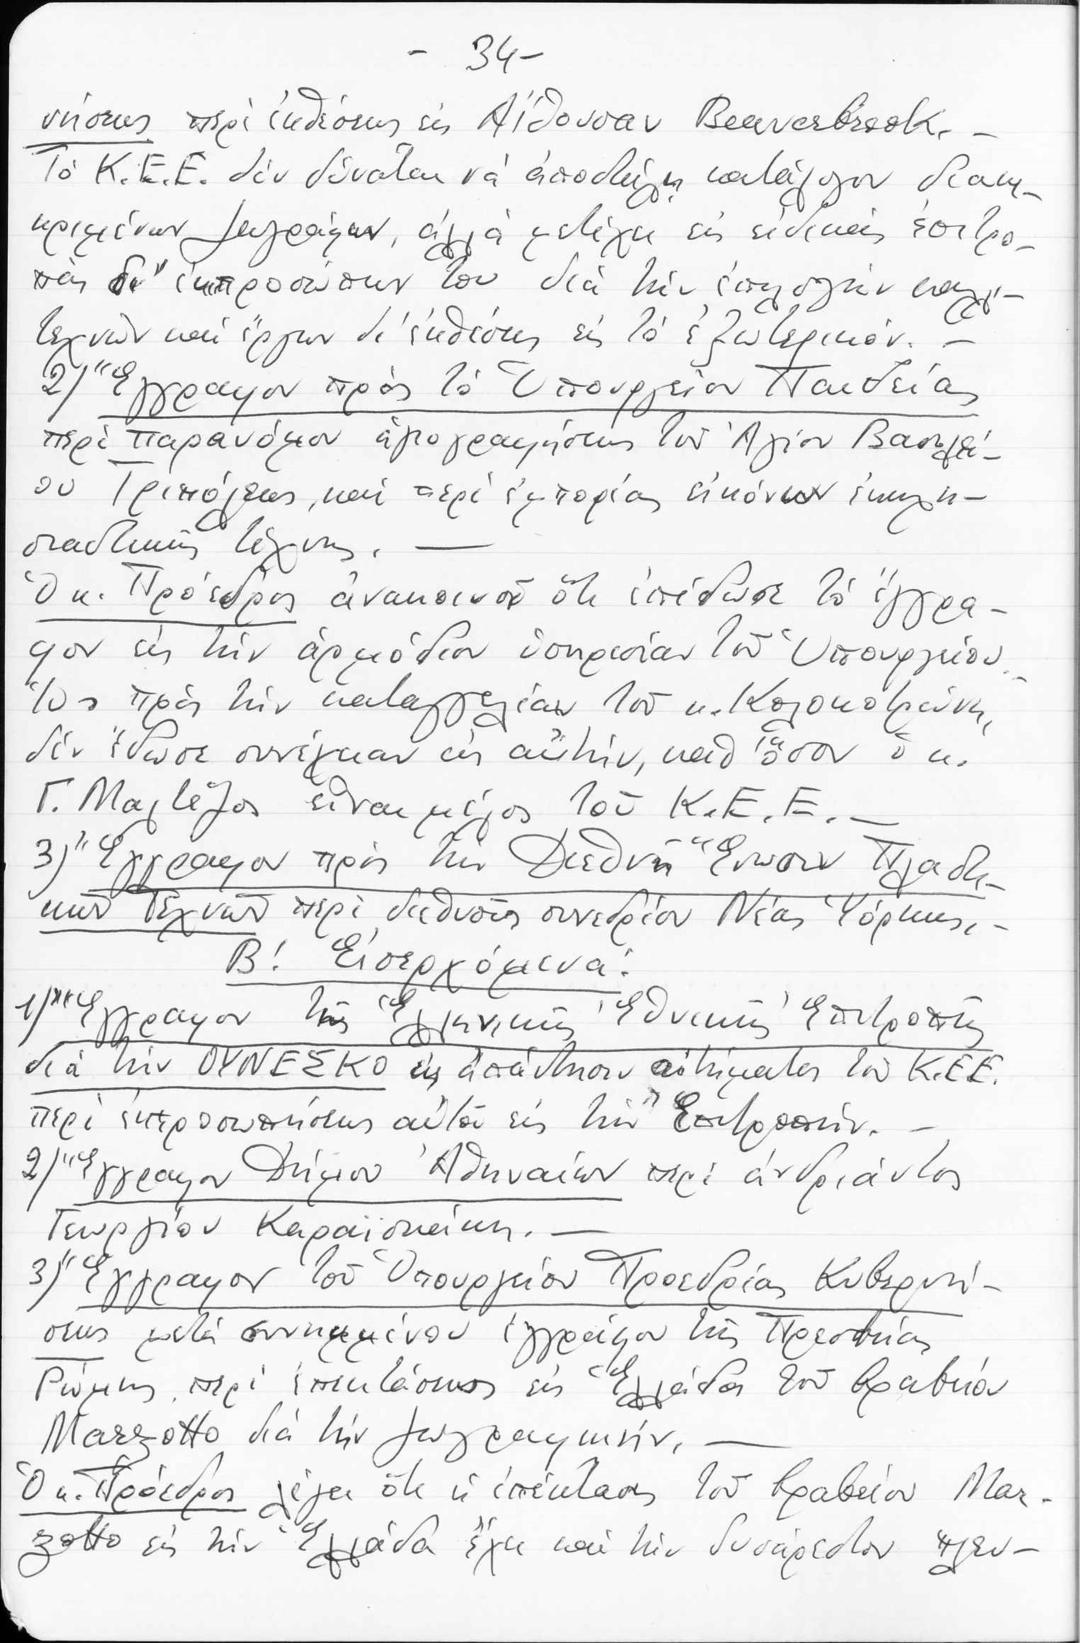 - 34 -
νήσεως περὶ ἐκθέσεως εἰς Αἴθουσαν Beaverbrook. -
Τὸ Κ.Ε.Ε. δὲν δύναται νὰ ἀποστείλῃ κατάλογον διακε-
κριμένων ζωγράφων, ἀλλὰ μετέχει εἰς εἰδικὰς ἐπιτρο-
πὰς δι' ἐκπροσώπων του διὰ τὴν ἐπιλογὴν καλλι-
τεχνῶν καὶ ἔργων δι' ἐκθέσεις εἰς τὸ ἐξωτερικόν. -
2) Ἔγγραφον πρὸς τὸ Ὑπουργεῖον Παιδείας
περὶ παρανόμου ἁγιογραφήσεως τοῦ Ἁγίου Βασιλεί-
ου Τριπόλεως, καὶ περὶ ἐμπορίας εἰκόνων ἐκκλη-
σιαστικῆς τέχνης. —
Ὁ κ. Πρόεδρος ἀνακοινοῖ ὅτι ἐπέδωσε τὸ ἔγγρα-
φον εἰς τὴν ἁρμόδιον ὑπηρεσίαν τοῦ Ὑπουργείου. -
Ὡς πρὸς τὴν καταγγελίαν τοῦ κ. Κολοκοτρώνη,
δὲν ἔδωσε συνέχειαν εἰς αὐτήν, καθ' ὅσον ὁ κ.
Γ. Μαλτέζος εἶναι μέλος τοῦ Κ.Ε.Ε. —
3) Ἔγγραφον πρὸς τὴν Διεθνῆ Ἕνωσιν Πλαστι-
κῶν Τεχνῶν περὶ διεθνοῦς συνεδρίου Νέας Ὑόρκης. -
Β! Εἰσερχόμενα:
1) Ἔγγραφον τῆς Ἑλληνικῆς Ἐθνικῆς Ἐπιτροπῆς
διὰ τὴν ΟΥΝΕΣΚΟ εἰς ἀπάντησιν αἰτήματος τοῦ Κ.Ε.Ε.
περὶ ἐκπροσωπήσεως αὐτοῦ εἰς τὴν Ἐπιτροπήν. -
2) Ἔγγραφον Δήμου Ἀθηναίων περὶ ἀνδριάντος
Γεωργίου Καραϊσκάκη. —
3) Ἔγγραφον τοῦ Ὑπουργείου Προεδρίας Κυβερνή-
σεως μετὰ συνημμένου ἐγγράφου τῆς Πρεσβείας
Ρώμης περὶ ἐπεκτάσεως εἰς Ἑλλάδα τοῦ βραβείου
Marzotto διὰ τὴν ζωγραφικήν. —
Ὁ κ. Πρόεδρος λέγει ὅτι ἡ ἐπέκτασις τοῦ βραβείου Mar-
zotto εἰς τὴν Ἑλλάδα ἔχει καὶ τὴν δυσάρεστον πλευ-